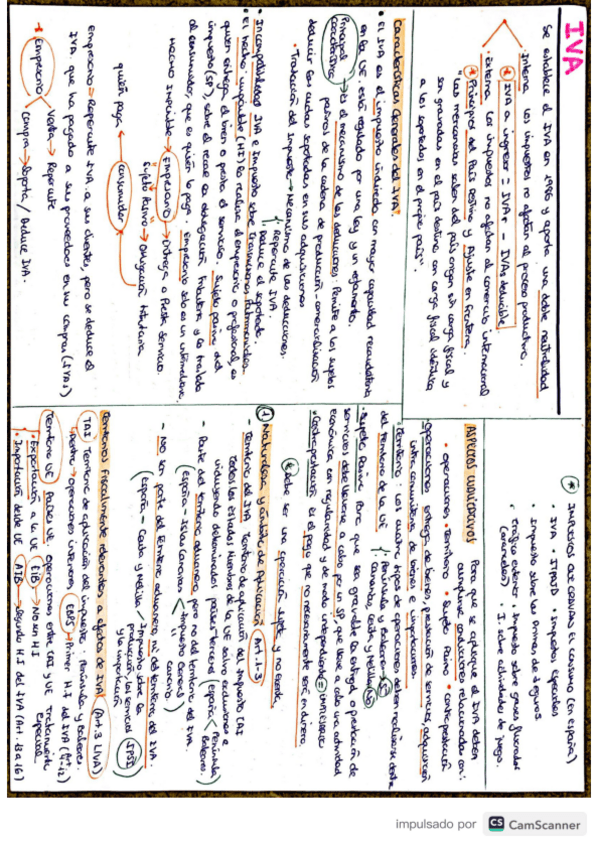 IVA
Se establece el IVA en 1986 y aporta una doble neutralidad
Interna Los impuestos no afectan al proceso productivo.
IVA a ingresar = IVAr - IVAs deducible
Externa Los impuestos no afectan al comercio internacional
Principios del País Destino y Ajuste en frontera.
"Las mercancías salen del país origen sin carga fiscal y
son gravadas en el país destino con carga fiscal idéntica
a los soportados en el propio país".
Características Generales del IVA.
• El IVA es el impuesto indirecto con mayor capacidad recaudatoria
en la UE. está regulado por una ley y un reglamento.
Principal característica → es el mecanismo de las deducciones. Permite a los sujetos
pasivos de la cadena de producción-comercialización
deducir las cuotas soportadas en sus adquisiciones
• Traslación del Impuesto → Mecanismo de las deducciones.
Repercute IVA.
Deduce el soportado.
• Incompatibilidad IVA e Impuesto sobre Transmisiones Patrimoniales.
• El hecho imponible (HI) lo realiza el empresario o profesional, es
quien entrega el bien o presta el servicio. Sujeto pasivo del
impuesto (SP), sobre él recae la obligación tributaria y la traslada
al consumidor, que es quien lo paga. Empresario solo es un intermediario.
Hecho Imponible → Empresario → Entrega o Presta Servicio.
Sujeto Pasivo → Obligación tributaria
quién paga → consumidor
Empresario → Repercute IVA a sus clientes, pero se deduce el
IVA que ha pagado a sus proveedores en su compras (IVAs)
• Empresario
Venta → Repercute
Compra → Soporta / deduce IVA.
IMPUESTOS QUE GRAVAN EL CONSUMO (EN ESPAÑA)
• IVA • ITPAJD • Impuestos Especiales
• Impuesto sobre las Primas de Seguros.
• Tráfico exterior • Impuesto sobre gases fluorados
(aranceles) • I. sobre actividades de juego.
ASPECTOS CUALITATIVOS
Para que se aplique el IVA deben
cumplirse condiciones relacionadas con:
• operaciones • Territorio • Sujeto Pasivo • contraprestación
• Operaciones entrega de bienes, prestación de servicios, adquisición
intracomunitaria de bienes e importaciones.
• Territorio: Los cuatro tipos de operaciones deben realizarse dentro
del territorio de la UE
Península y Baleares SÍ
Canarias, Ceuta y Melilla NO
• Sujeto Pasivo Para que sea gravable la entrega o prestación de
servicios debe llevarse a cabo por un SP, que lleve a cabo una actividad
económica con regularidad y de modo independiente = EMPRESARIO
• Contraprestación Es el pago que no necesariamente será en dinero
debe ser una operación sujeta y no exenta.
1 Naturaleza y ámbito de Aplicación Art. 1-3
- Territorio del IVA Territorio de aplicación del impuesto TAI
Todos los estados Miembros de la UE salvo exclusiones e
incluyendo determinados países terceros (España Península Baleares.
- Parte del territorio aduanero pero no del territorio del IVA
(España - Islas Canarias
- No son parte del Territorio aduanero ni del territorio del IVA
(España - Ceuta y Melilla - Impuesto sobre la
producción, los servicios
y la importación IPSI
Territorios fiscalmente relevantes a efectos de IVA (Art. 3 LIVA)
TAI Territorio de aplicación del impuesto: Península y Baleares.
Dentro → operaciones interiores EBPS → Primer H.I del IVA
Territorio UE Países UE operaciones entre TAI y UE Tratamiento
Especial
• Exportación a la UE EIB → No son HI
• Importación desde UE AIB → Segundo H.I del IVA (Art. 13 a 16)
impulsado por CS CamScanner